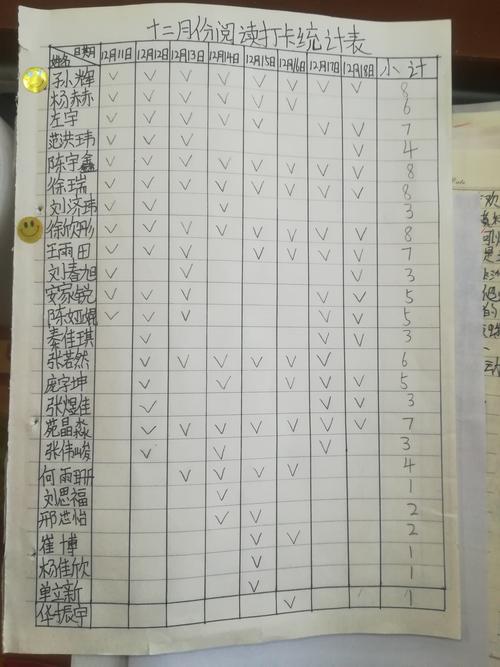 十二月份阅读打卡统计表
日期 姓名 12月11日 12月12日 12月13日 12月14日 12月15日 12月16日 12月17日 12月18日 小计
孙小辉 ✓ ✓ ✓ ✓ ✓ ✓ ✓ ✓ 8
杨赫赫 ✓ ✓ ✓ ✓ ✓ ✓ 6
左宇 ✓ ✓ ✓ ✓ ✓ ✓ ✓ 7
范洪玮 ✓ ✓ ✓ ✓ 4
陈宇鑫 ✓ ✓ ✓ ✓ ✓ ✓ ✓ ✓ 8
徐瑞 ✓ ✓ ✓ ✓ ✓ ✓ ✓ ✓ 8
刘济玮 ✓ ✓ ✓ 3
徐欣彤 ✓ ✓ ✓ ✓ ✓ ✓ ✓ ✓ 8
王雨田 ✓ ✓ ✓ ✓ ✓ ✓ ✓ 7
刘春旭 ✓ ✓ ✓ 3
安家锐 ✓ ✓ ✓ ✓ ✓ 5
陈娅婫 ✓ ✓ ✓ ✓ ✓ 5
秦佳琪 ✓ ✓ ✓ 3
张若然 ✓ ✓ ✓ ✓ ✓ ✓ 6
庞宇坤 ✓ ✓ ✓ ✓ ✓ 5
张煜佳 ✓ ✓ ✓ 3
苑晶淼 ✓ ✓ ✓ ✓ ✓ ✓ ✓ 7
张伟峻 ✓ ✓ ✓ 3
何雨珊 ✓ ✓ ✓ ✓ 4
刘思福 ✓ 1
邢芯怡 ✓ ✓ 2
崔博 ✓ ✓ 2
杨佳欣 ✓ 1
单立新 ✓ 1
华振宇 ✓ 1